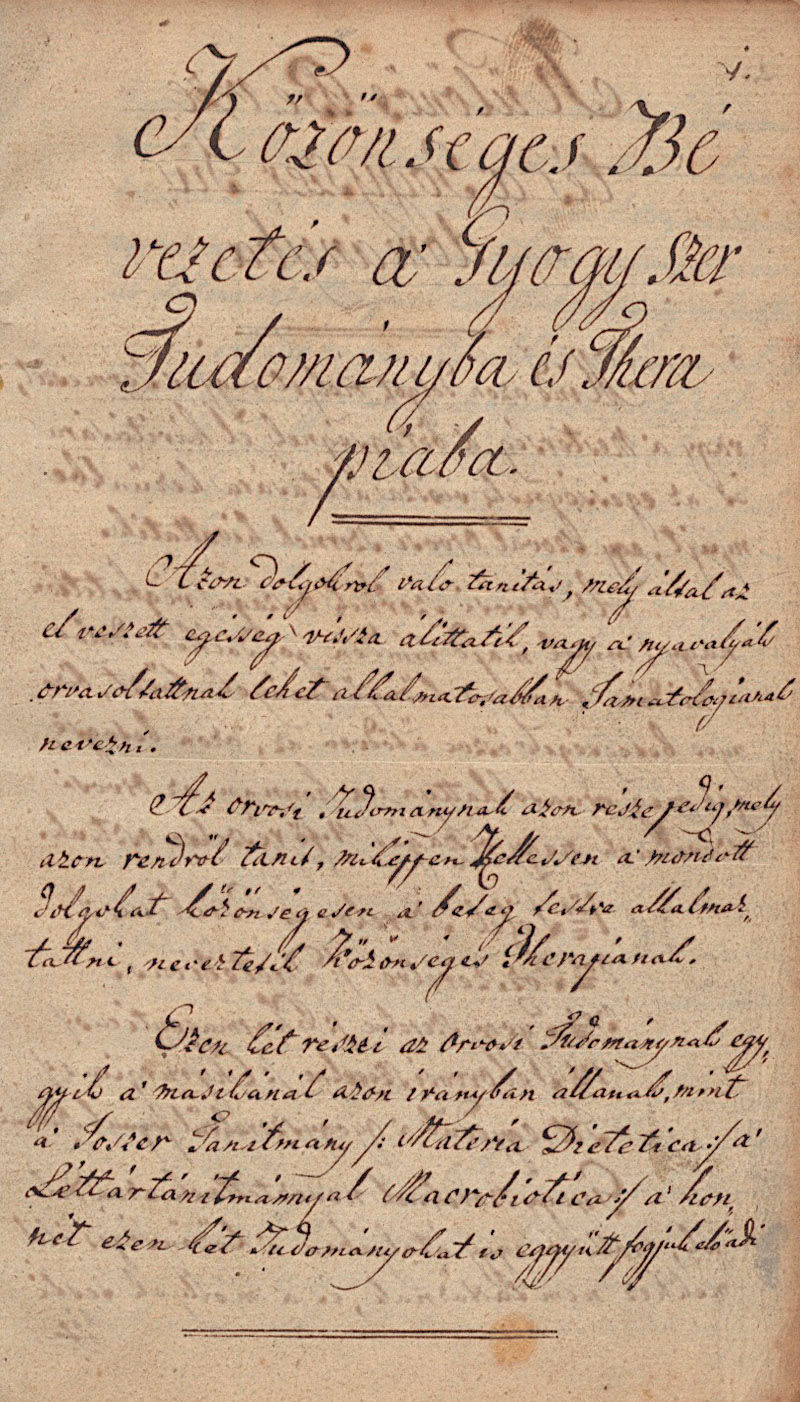 1.
Közönséges Bé
vezetés a' Gyogy szer
Tudományba és Thera
piaba.
Azon dolgokrol valo tanitás, mely által az
el veszett egésség vissza álittatik, vagy a' nyavalyák
orvasoltattnak lehet alkalmatosabban Jamatologianak
nevezni.
Az orvosi Tudománynak azon része pedig, mely
azon rendröl tanit, miképpen Kellessen a' mondott
dolgokat közönségesen a' beteg testre alkalmaz„
tattni, neveztetik Közönséges Therapianak.
Ezen két részei az orvosi Tudománynak egy„
gyik a' másikánál azon irányban állanak, mint
a' Joszer Tanitmány /: Materia Dietetica :/ a'
Léttártánitmánnyal Macrobiotica :/ a' hon„
nét ezen két Tudományokat is eggyütt fogjuk elö adi